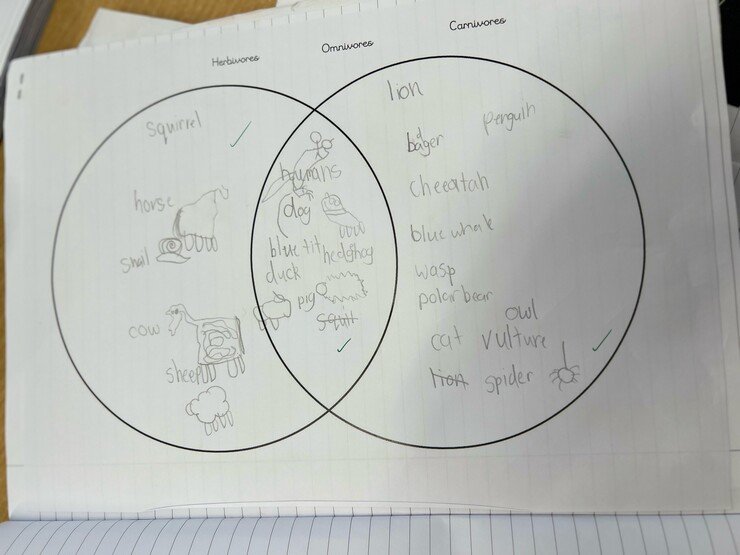 Herbivores
Omnivores
Carnivores
squirrel
horse
snail
cow
sheep
humans
dog
blue tit
hedghog
duck
pig
squir
lion
penguin
badger
cheeatah
blue whale
wasp
polar bear
owl
cat
vulture
lion
spider